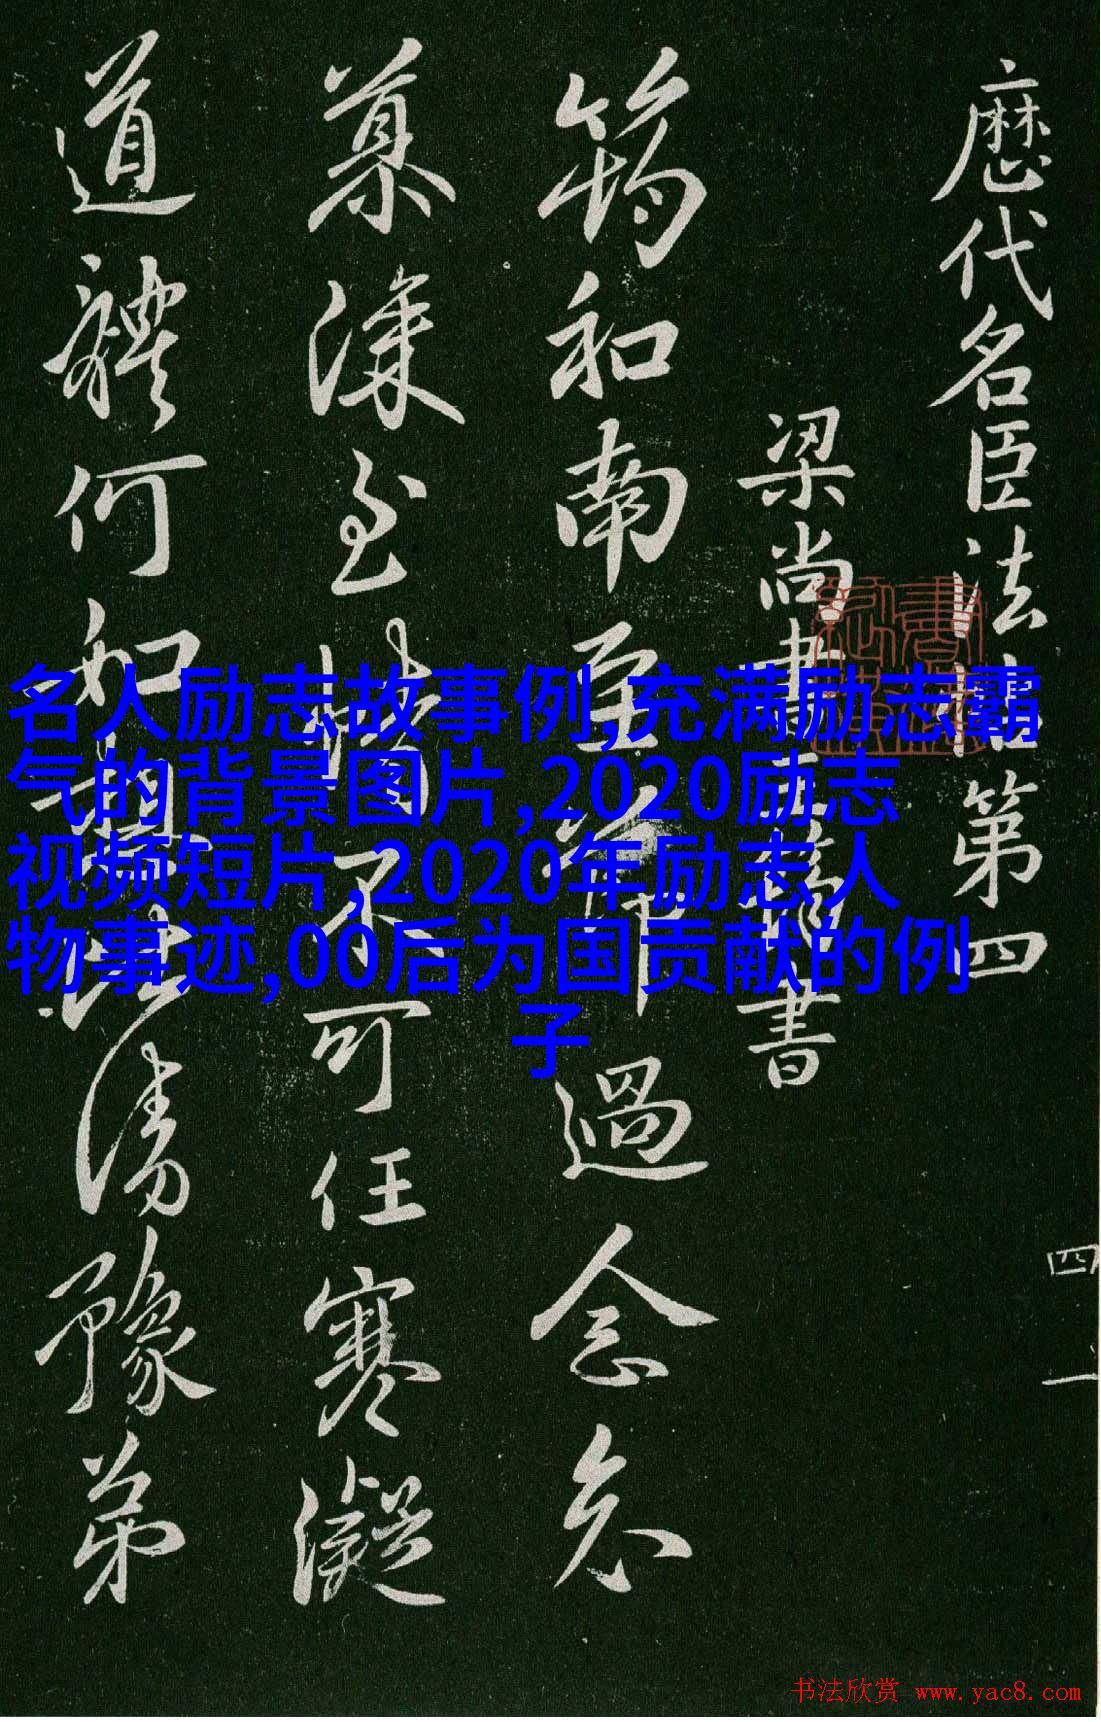 歷代名臣法帖第四
梁尚書王筠書
筠和南至節過念念
道體何如
可任寒凝
清豫弟
四
一
名人励志故事例,充满励志霸
气的背景图片,2020励志
视频短片,2020年励志人
物事迹,00后为国贡献的例
子
书法欣赏 www.yac8.com